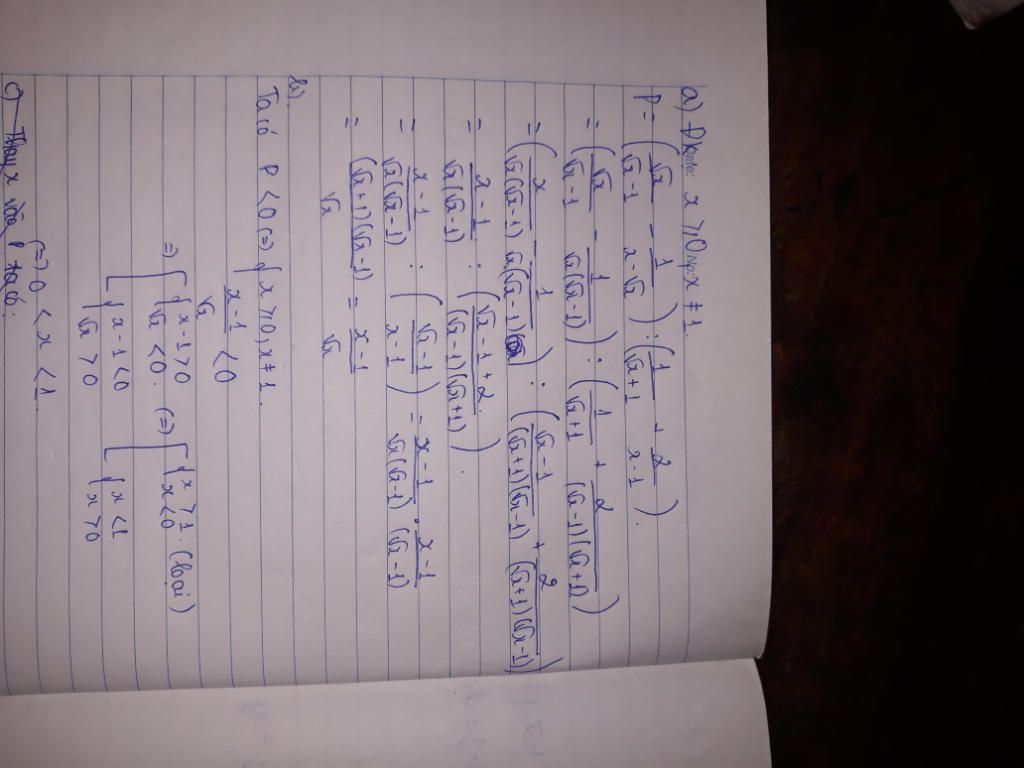 a) Đkxđ: x > 0, x ≠ 1.
P = (√x/(√x-1) - 1/(x-√x)) : (1/(√x+1) + 2/(x-1)).
= (√x/(√x-1) - 1/(√x(√x-1))) : (1/(√x+1) + 2/((√x-1)(√x+1)))
= (x/(√x(√x-1)) - 1/(√x(√x-1))) : ((√x-1)/((√x+1)(√x-1)) + 2/((√x+1)(√x-1)))
= (x-1)/(√x(√x-1)) : ((√x-1+2)/((√x-1)(√x+1))).
= (x-1)/(√x(√x-1)) : ((√x-1)/(x-1)) = (x-1)/(√x(√x-1)) · (x-1)/(√x-1)
= ((√x+1)(√x-1))/√x = (x-1)/√x
b).
Ta có P < 0 (=) { x > 0, x ≠ 1.
(x-1)/√x < 0
=) [ { x-1 > 0 √x < 0. (=) [ { x > 1 x < 0 . (loại)
{ x-1 < 0 √x > 0 { x < 1 x > 0
(=) 0 < x < 1.
c) Thay x vào P ta có: